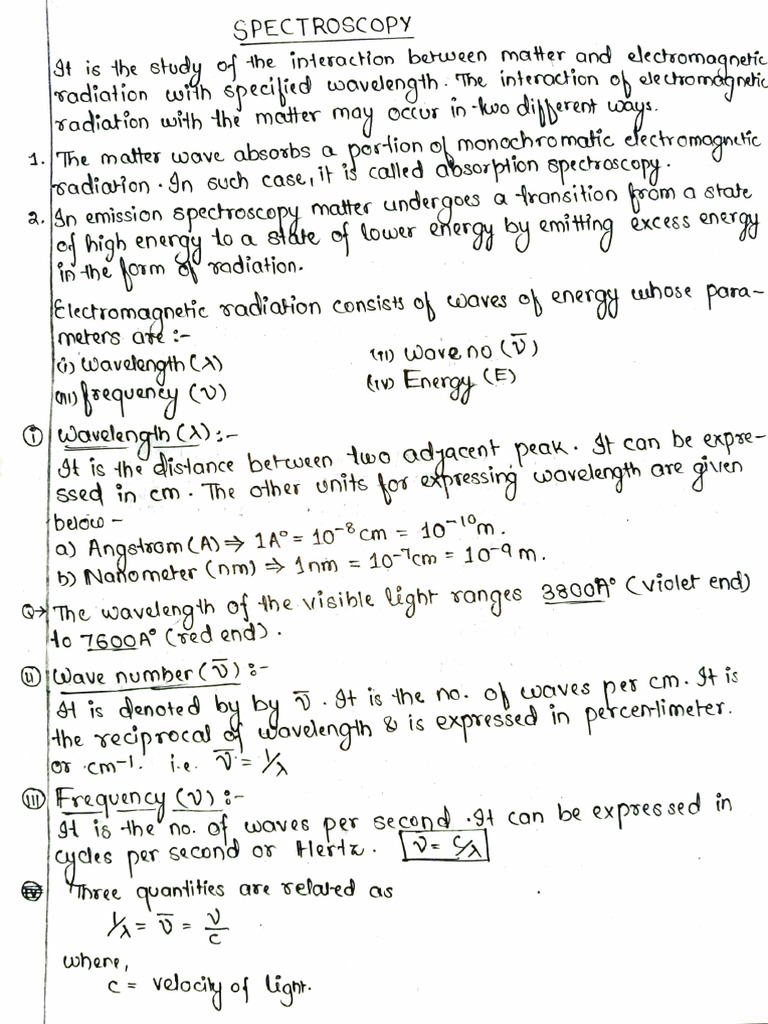 SPECTROSCOPY
It is the study of the interaction between matter and electromagnetic
radiation with specified wavelength. The interaction of electromagnetic
radiation with the matter may occur in two different ways.
1. The matter wave absorbs a portion of monochromatic electromagnetic
radiation. In such case, it is called absorption spectroscopy.
2. In emission spectroscopy matter undergoes a transition from a state
of high energy to a state of lower energy by emitting excess energy
in the form of radiation.
Electromagnetic radiation consists of waves of energy whose para-
meters are :-
(i) Wavelength (λ) (ii) Wave no (ν̅)
(iii) frequency (ν) (iv) Energy (E)
(i) Wavelength (λ) :-
It is the distance between two adjacent peak. It can be expre-
ssed in cm. The other units for expressing wavelength are given
below -
a) Angstrom (A) ⇒ 1A° = 10⁻⁸cm = 10⁻¹⁰m.
b) Nanometer (nm) ⇒ 1nm = 10⁻⁷cm = 10⁻⁹m.
Q→ The wavelength of the visible light ranges 3800A° (violet end)
to 7600A° (red end).
(ii) Wave number (ν̅) :-
It is denoted by by ν̅. It is the no. of waves per cm. It is
the reciprocal of wavelength & is expressed in percentimeter.
or cm⁻¹. i.e. ν̅ = 1/λ
(iii) Frequency (ν) :-
It is the no. of waves per second. It can be expressed in
cycles per second or Hertz. ν = c/λ
(iv) Three quantities are related as
1/λ = ν̅ = ν/c
where,
c = velocity of light.